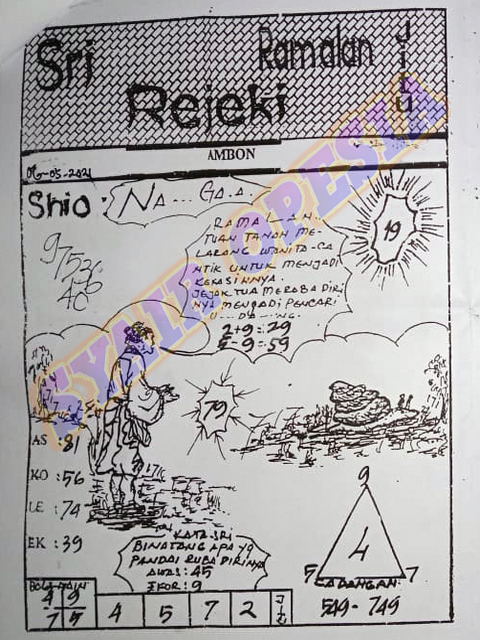 Sri
Ramalan
Rejeki
JITU
AMBON
06-05-2021
Shio :
NA... GA.A.
RAMAL-AN..
TUAN TANAH ME-
LARANG WANITA-CA
NTIK UNTUK MENJADI
KEKASIHNYA.
JEJAK TUA MERABA DIRI
NYA MENJADI PENCARI
2+9=29
5-9=59
19
SYAIR OPESIA
79
AS : 81
KO : 56
LE : 74
EK : 39
KATA SRI
BINATANG APA YG
PANDAI RUBA DIRINYA
AWAS : 45
EKOR : 9
9
4
5 7
CADANGAN
549 - 749
BOLA MAIN
4 9
7 5
4 5 7 2 JITU